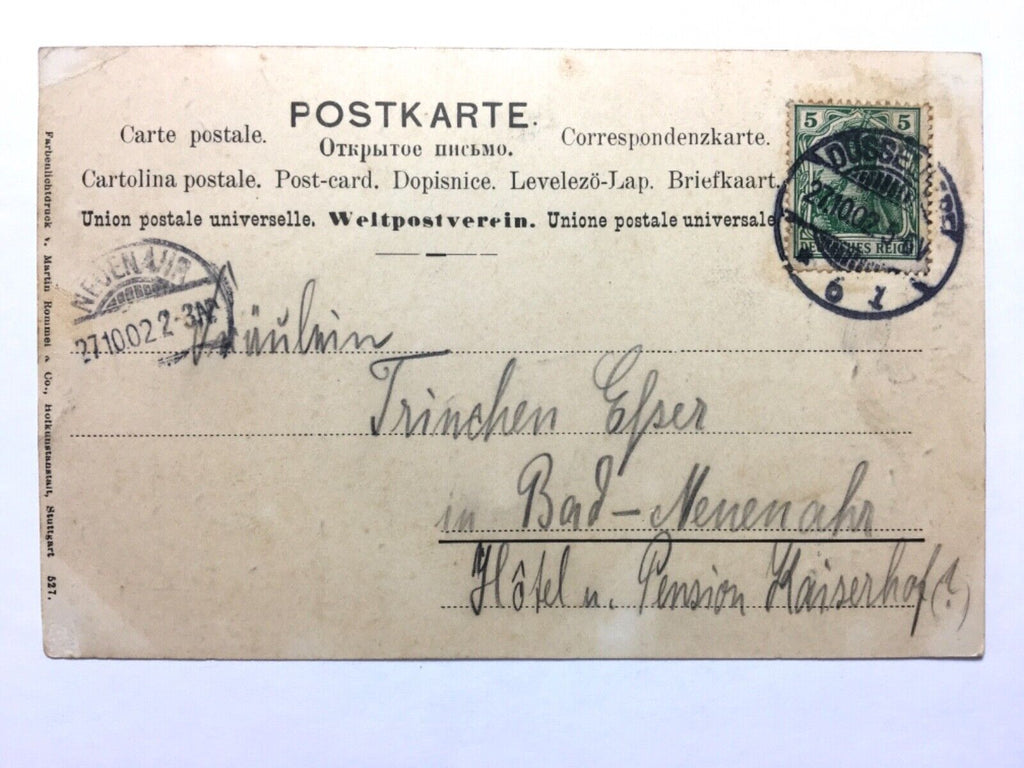 POSTKARTE.
Carte postale. Открытое письмо. Correspondenzkarte.
Cartolina postale. Post-card. Dopisnice. Levelezö-Lap. Briefkaart.
Union postale universelle. Weltpostverein. Unione postale universale
5 5
DUSSEL
27.10.02.
DEUTSCHES REICH
6 1
NEUENAHR
27.10.02 2-3N.
Fräulein
Trinchen Esser
in Bad-Neuenahr
Hôtel u. Pension Kaiserhof(?)
Farbenlichtdruck v. Martin Rommel & Co., Hofkunstanstalt, Stuttgart 527.